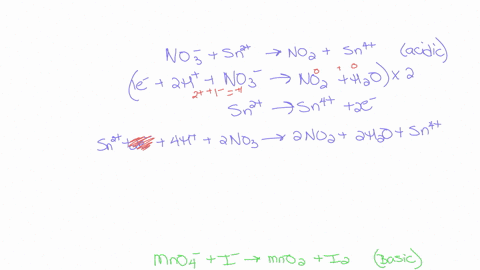 NO₃⁻ + Sn²⁺ → NO₂ + Sn⁴⁺ (acidic)
(1e⁻ + 2H⁺ + NO₃⁻ → NO₂ + H₂O) × 2
0 + 0
2+ + 1- = +1
Sn²⁺ → Sn⁴⁺ + 2e⁻
Sn²⁺ + 4H⁺ + 2NO₃ → 2NO₂ + 2H₂O + Sn⁴⁺
MnO₄⁻ + I⁻ → MnO₂ + I₂ (Basic)